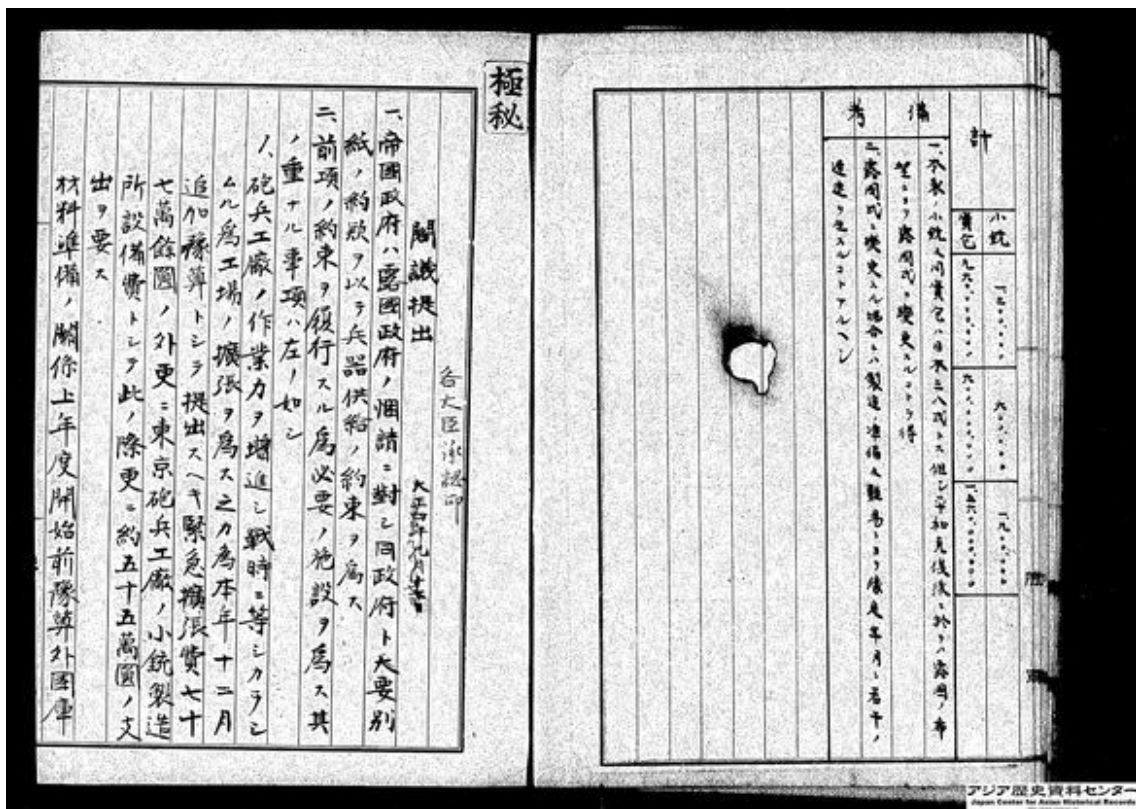 計
小銃
實包
備考
一、本表ノ小銃及同實包ハ日本三八式トス但シ平和克復後ニ於テハ露國ノ希
望ニヨリ露國式ニ變更スルコトヲ得
二、露國式ニ變更スル場合ハ製造準備
遅延ヲ生スルコトアルヘシ
極秘
各大臣承認印
閣議提出
大正四年九月
一、帝國政府ハ露國政府ノ悃請ニ對シ同政府ト大要別
紙ノ約款ヲ以テ兵器供給ノ約束ヲ爲ス
二、前項ノ約束ヲ履行スル爲必要ノ施設ヲ爲ス其
ノ重ナル事項ハ左ノ如シ
イ、砲兵工廠ノ作業力ヲ增進シ戰時ニ等シカラシ
ムル爲工場ノ擴張ヲ爲ス之カ爲本年十二月
追加豫算トシテ提出スヘキ緊急擴張費七十
七萬餘圓ノ外更ニ東京砲兵工廠ノ小銃製造
所設備費トシテ此ノ際更ニ約五十五萬圓ノ支
出ヲ要ス
材料準備ノ關係上年度開始前豫算外國庫
アジア歴史資料センター
Japan Center for Asian Historical Records